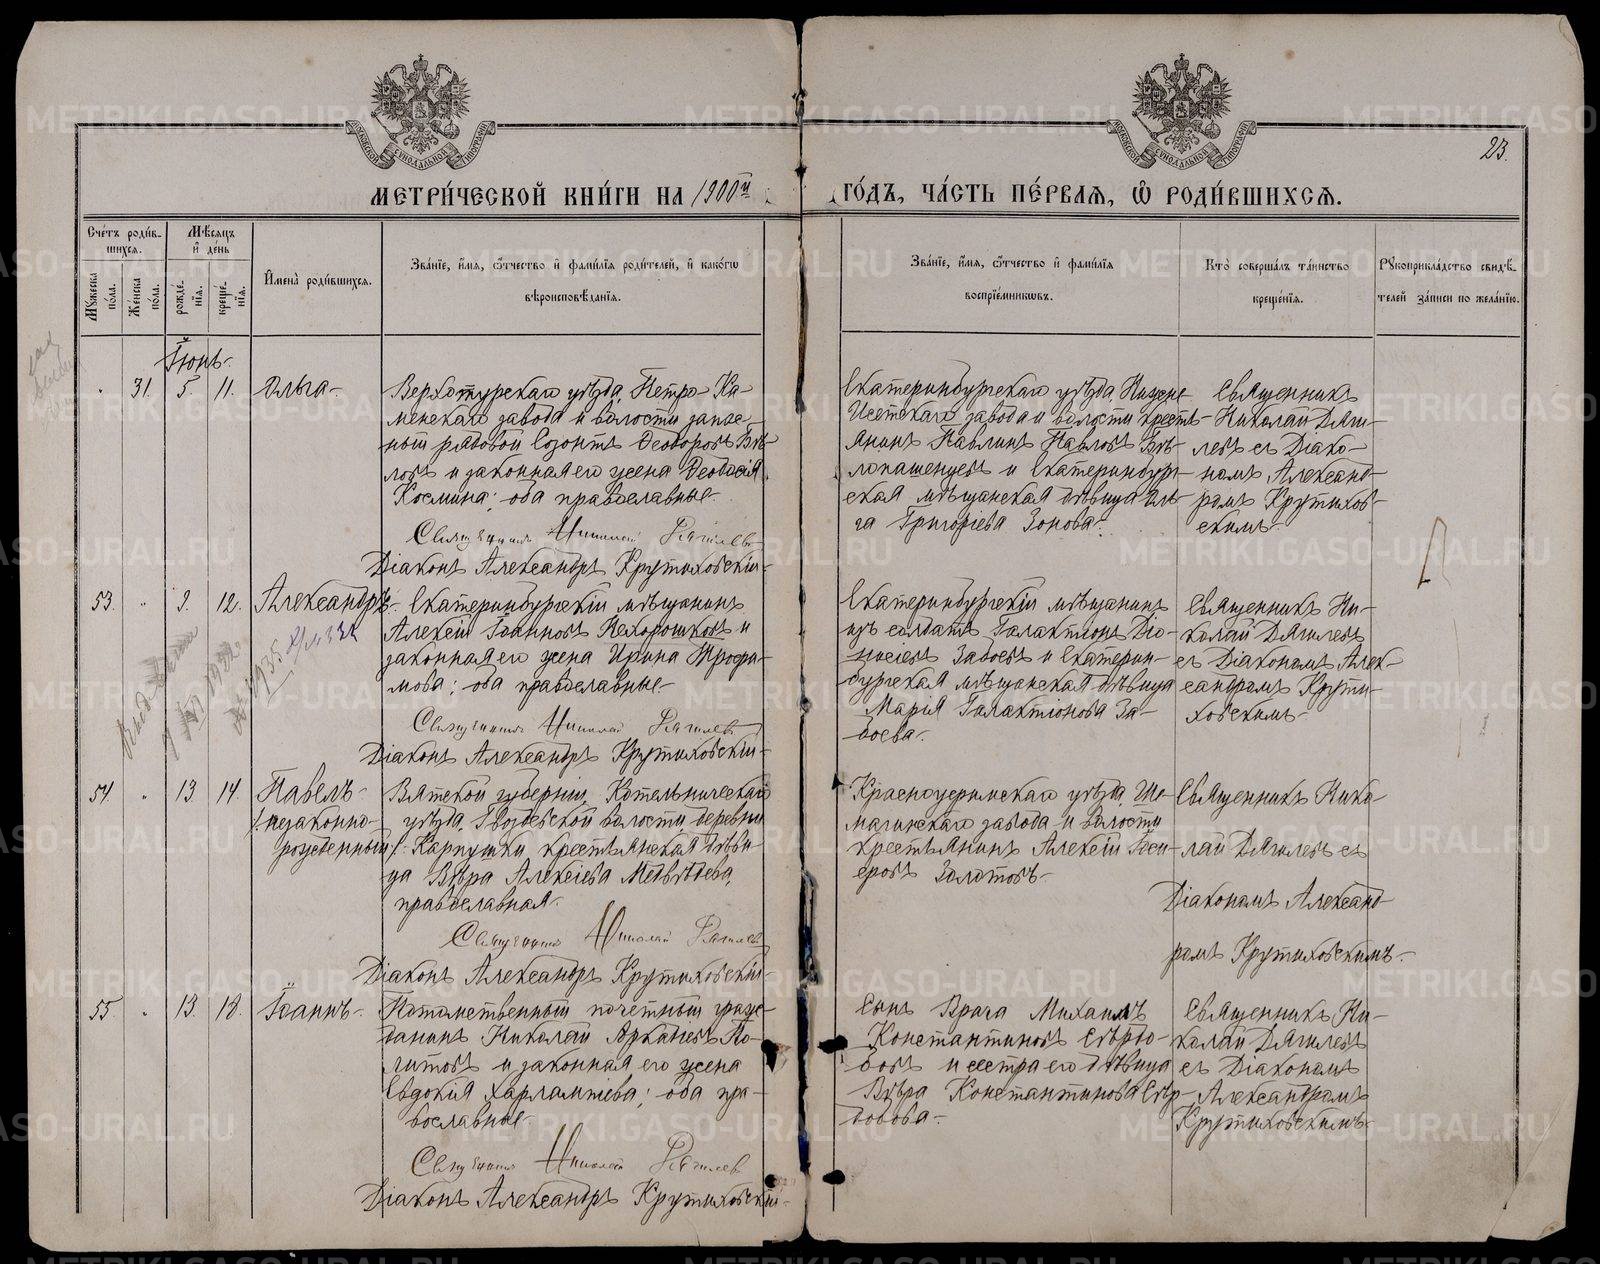 МОСКОВСКОЙ СѴНОДАЛЬНОЙ ТИПОГРАФІИ
МОСКОВСКОЙ СѴНОДАЛЬНОЙ ТИПОГРАФІИ
23.
МЕТРИ́ЧЕСКОЙ КНИ́ГИ НА 1900й ГО́ДЪ, ЧА́СТЬ ПЕ́РВАѦ, Ѡ РОДИ́ВШИХСѦ.
Сче́тъ роди́в-
шихсѧ.
Мꙋжеска по́ла.
Же́нска по́ла.
Мѣ́сѧцъ и де́нь
рожде́нїѧ.
креще́нїѧ.
Имена̀ роди́вшихсѧ.
Зва́нїе, и́мѧ, ѻ́тчество и фами́лїѧ роди́телей, и како́гѡ
вѣроисповѣ́данїѧ.
Зва́нїе, и́мѧ, ѻ́тчество и фами́лїѧ
воспрїе́мникѡвъ.
Кто̀ соверша́лъ та́инство
креще́нїѧ.
Рꙋкоприкла́дство свидѣ́-
телей за́писи по жела́нїю.
Іюнь.
31. 5. 11. Ольга.
Верхотурскаго уѣзда, Петро-Ка-
менскаго завода и волости запас-
ный рядовой Созонтъ Ѳеодоровъ Бѣ-
ловъ и законная его жена Ѳеодосія
Космина; оба православные.
Священникъ Николай Дягилевъ
Діаконъ Александръ Крутиховскій.
Екатеринбургскаго уѣзда, Нижне-
Исетскаго завода и волости крестъ-
янинъ Павлинъ Павловъ Бѣ-
лопашенцевъ и Екатеринбург-
ская мѣщанская дѣвица Оль-
га Григоріева Зонова.
Священникъ
Николай Дяги-
левъ съ Діако-
номъ Александ-
ромъ Крутихов-
скимъ.
53. 9. 12. Александръ.
Екатеринбургскій мѣщанинъ
Алексій Іоанновъ Нехорошковъ и
законная его жена Ирина Трофи-
мова; оба православные.
Священникъ Николай Дягилевъ
Діаконъ Александръ Крутиховскій.
Екатеринбургскій мѣщанинъ
изъ солдатъ Галактіонъ Діо-
нисіевъ Забоевъ и Екатерин-
бургская мѣщанская дѣвица
Марія Галактіонова За-
боева.
Священникъ Ни-
колай Дягилевъ
съ Діакономъ Алек-
сандромъ Крути-
ховскимъ.
1935
54. 13 14. Павелъ
/незаконно-
рожденный/
Вятской губерніи, Котельническаго
уѣзда, Гвоздевской волости, деревни
Карпушки крестьянская дѣви-
ца Вѣра Алексіева Медвѣдева,
православная.
Священникъ Николай Дягилевъ
Діаконъ Александръ Крутиховскій.
Красноуфимскаго уѣзда, Ше-
магинскаго завода и волости
крестьянинъ Алексій
Золотовъ.
Священникъ Нико-
лай Дягилевъ съ
Діакономъ Александ-
ромъ Крутиховскимъ.
55. 13. 18. Іоаннъ.
Потомственный почетный граж-
данинъ Николай Аркадіевъ По-
литовъ и законная его жена
Евдокія Харлампіева; оба пра-
вославные.
Священникъ Николай Дягилевъ
Діаконъ Александръ Крутиховскій.
Сынъ Врача Михаилъ
Константиновъ Сѣрдо-
бовъ и сестра его дѣвица
Вѣра Константинова Сѣр-
добова.
Священникъ Ни-
колай Дягилевъ
съ Діакономъ
Александромъ
Крутиховскимъ.
METRIKI.GASO-URAL.RU